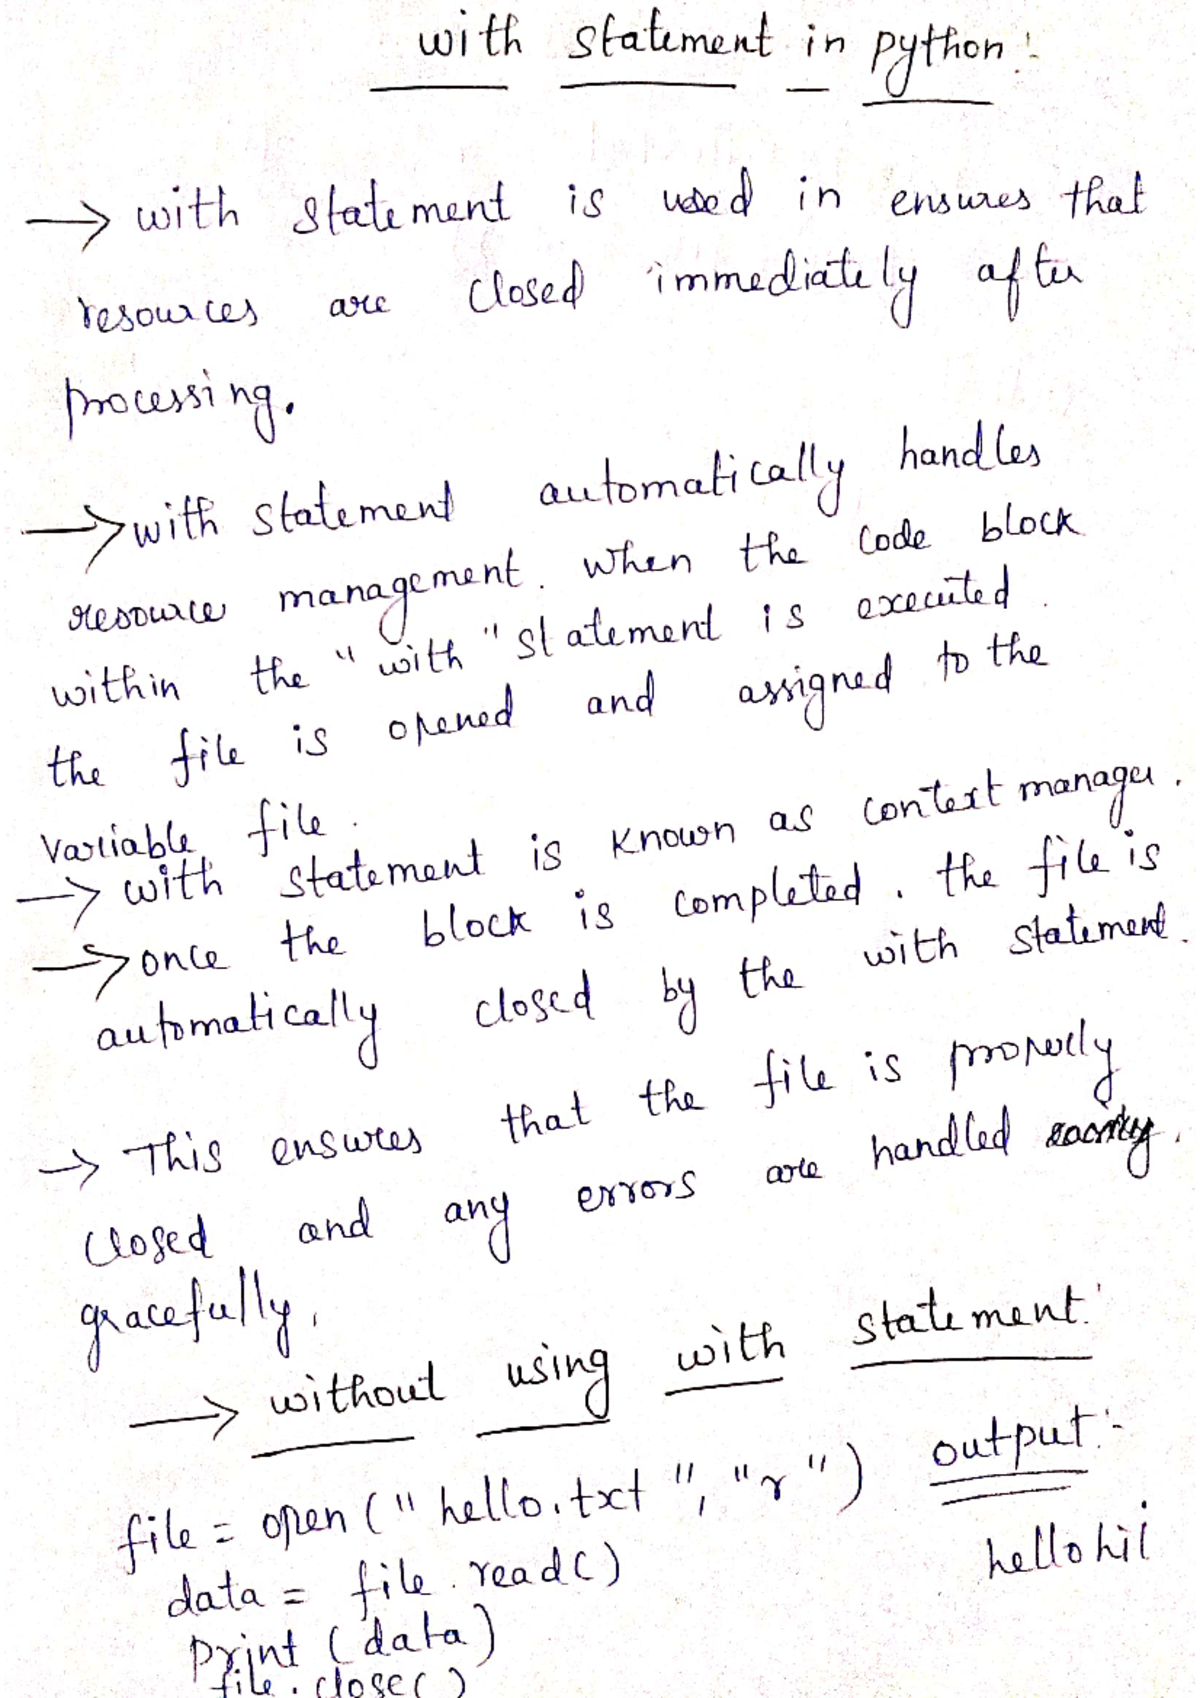 with statement in python:-
→ with statement is used in ensures that
resources are closed immediately after
processing.
→ with statement automatically handles
resource management. when the code block
within the "with" statement is executed.
the file is opened and assigned to the
variable file.
→ with statement is known as context manager.
→ once the block is completed. the file is
automatically closed by the with statement.
→ This ensures that the file is properly
closed and any errors are handled
gracefully.
→ without using with statement:
file = open("hello.txt", "r") output:-
data = file.read() hello hii
print(data)
file.close()